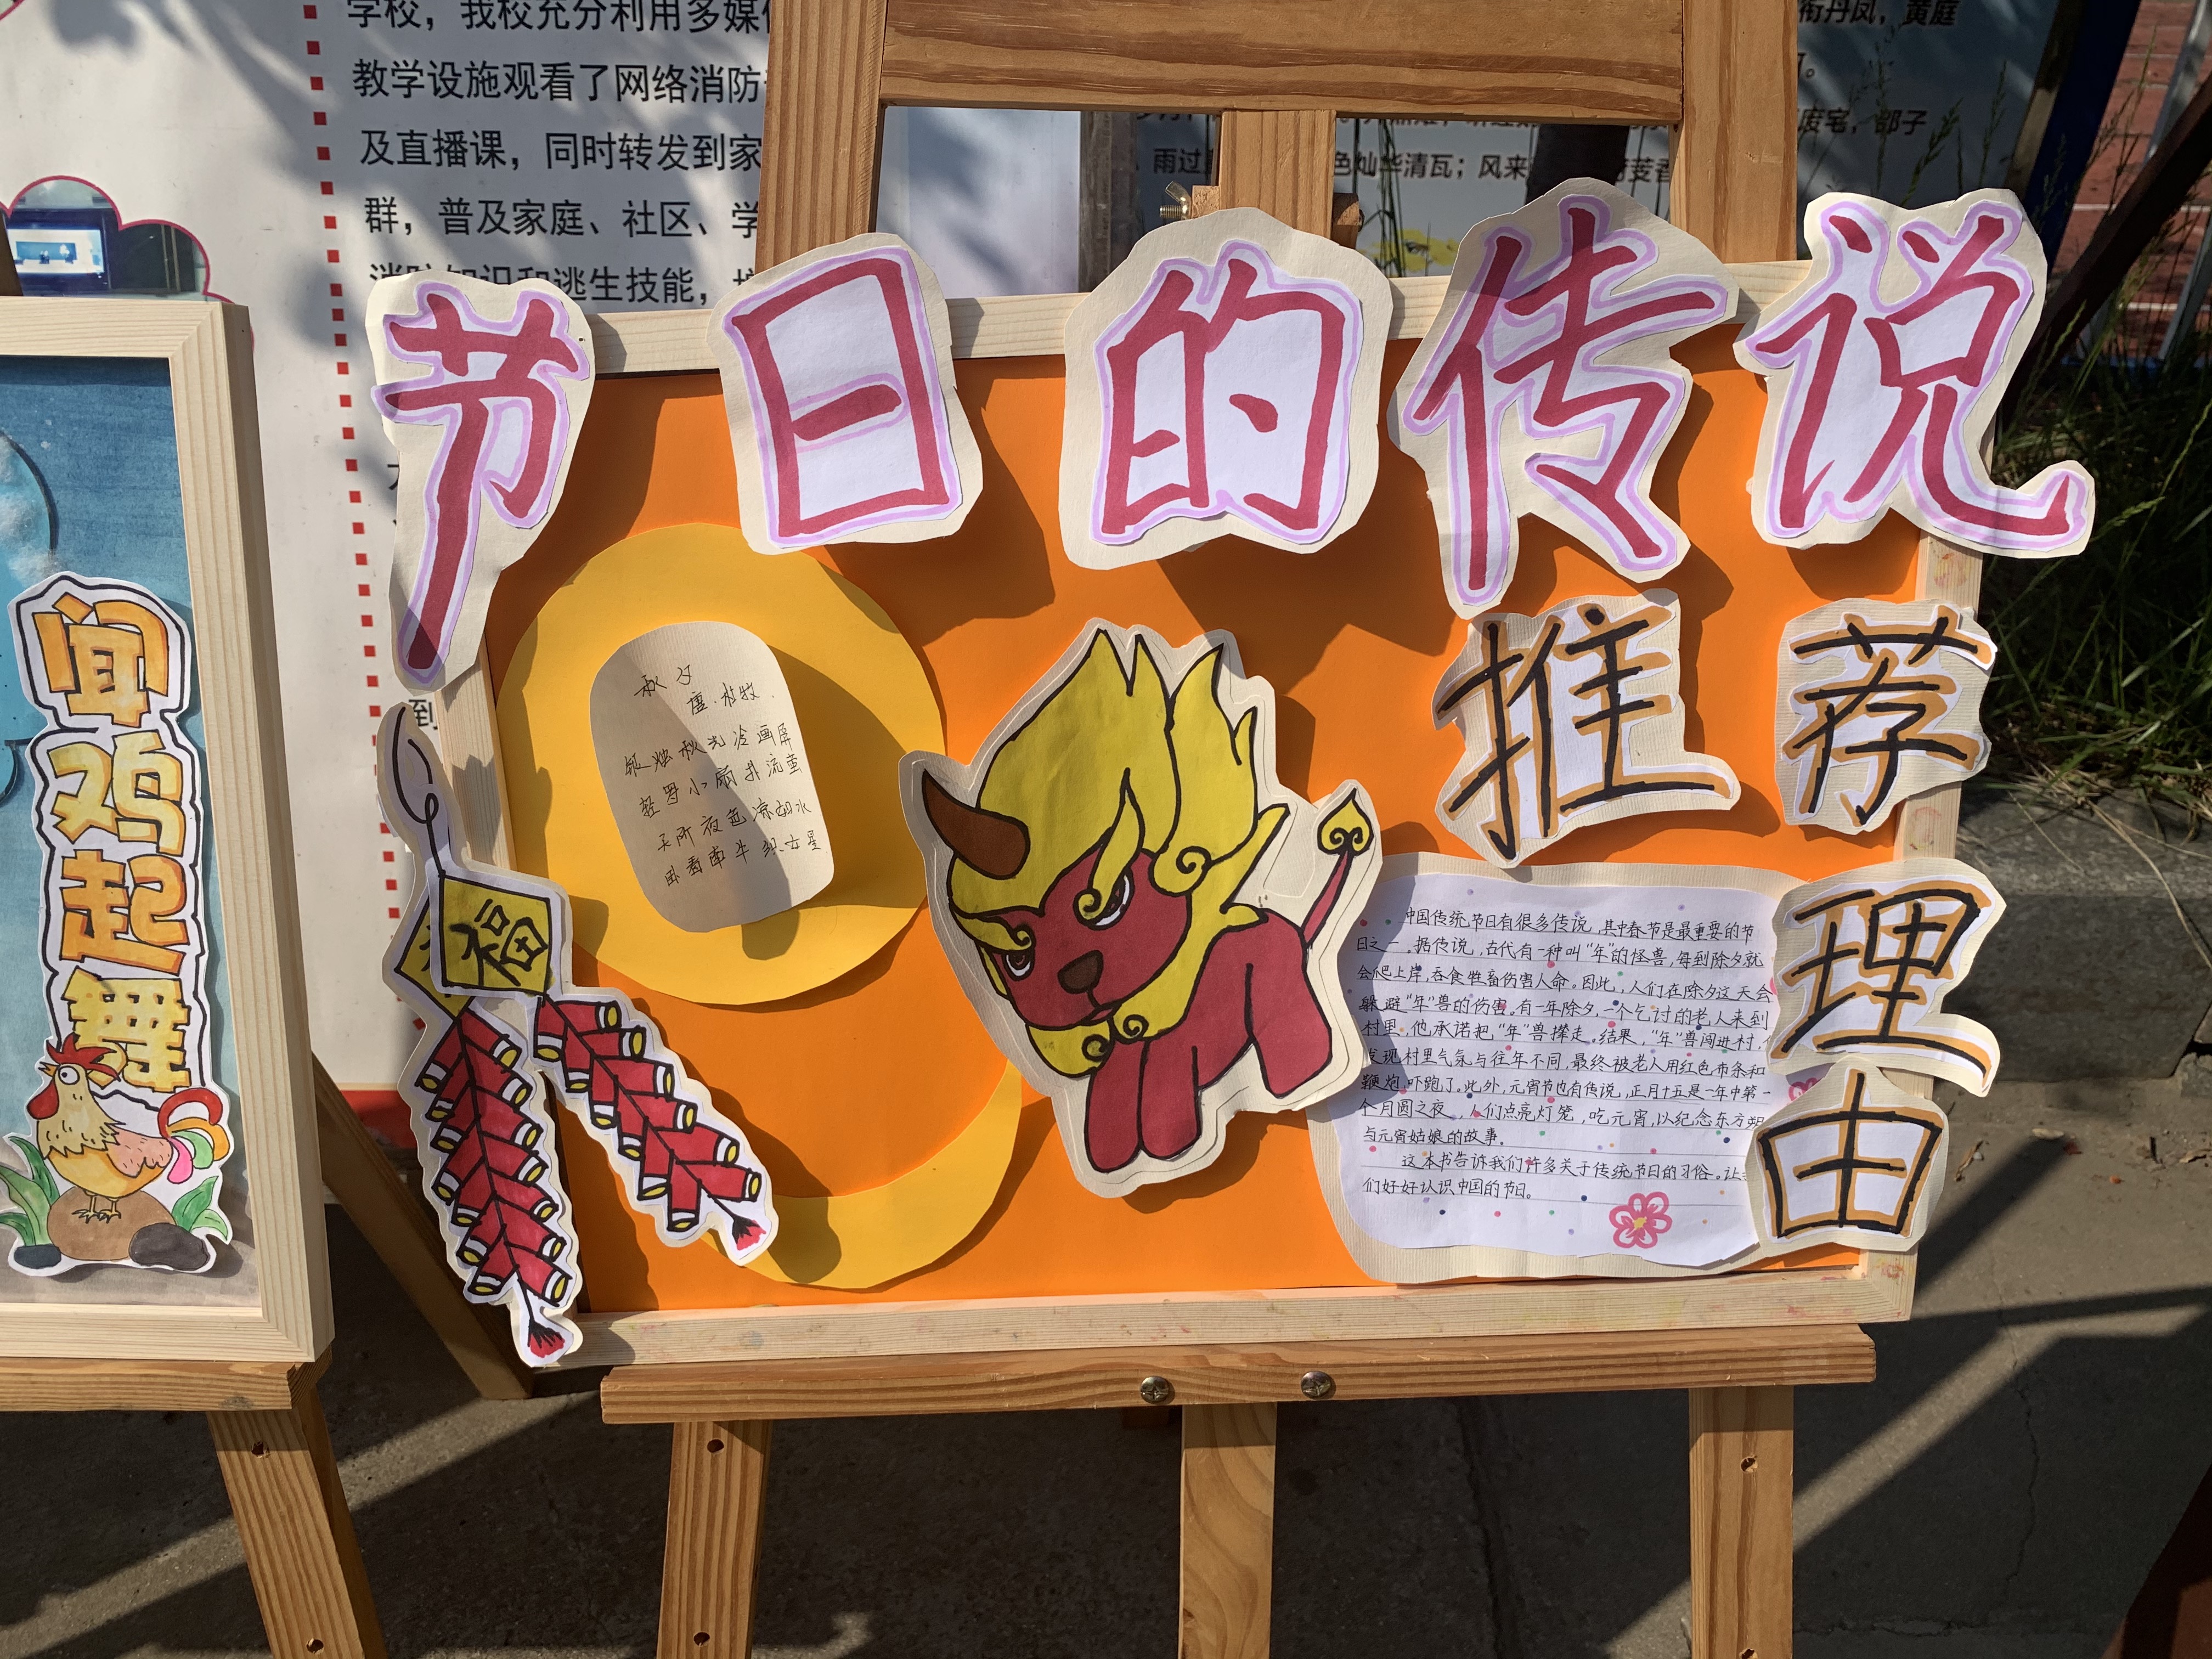 学校，我校充分利用多媒
教学设施观看了网络消防
及直播课，同时转发到家
群，普及家庭、社区、学
消防知识和逃生技能，
到
衔丹凤，黄庭
度宅，部子
雨过
色灿华清瓦；风来
闻鸡起舞
节日的传说
推荐理由
秋夕
唐.杜牧
银烛秋光冷画屏
轻罗小扇扑流萤
天阶夜色凉如水
卧看牵牛织女星
福
中国传统节日有很多传说，其中春节是最重要的节
日之一。据传说，古代有一种叫“年”的怪兽，每到除夕就
会爬上岸，吞食牲畜伤害人命。因此，人们在除夕这天会
躲避“年”兽的伤害。有一年除夕，一个乞讨的老人来到
村里，他承诺把“年”兽撵走。结果，“年”兽闯进村，
发现村里气氛与往年不同，最终被老人用红色布条和
鞭炮吓跑了。此外，元宵节也有传说，正月十五是一年中第一
个月圆之夜，人们点亮灯笼，吃元宵，以纪念东方朔
与元宵姑娘的故事。
这本书告诉我们许多关于传统节日的习俗。让我
们好好认识中国的节日。